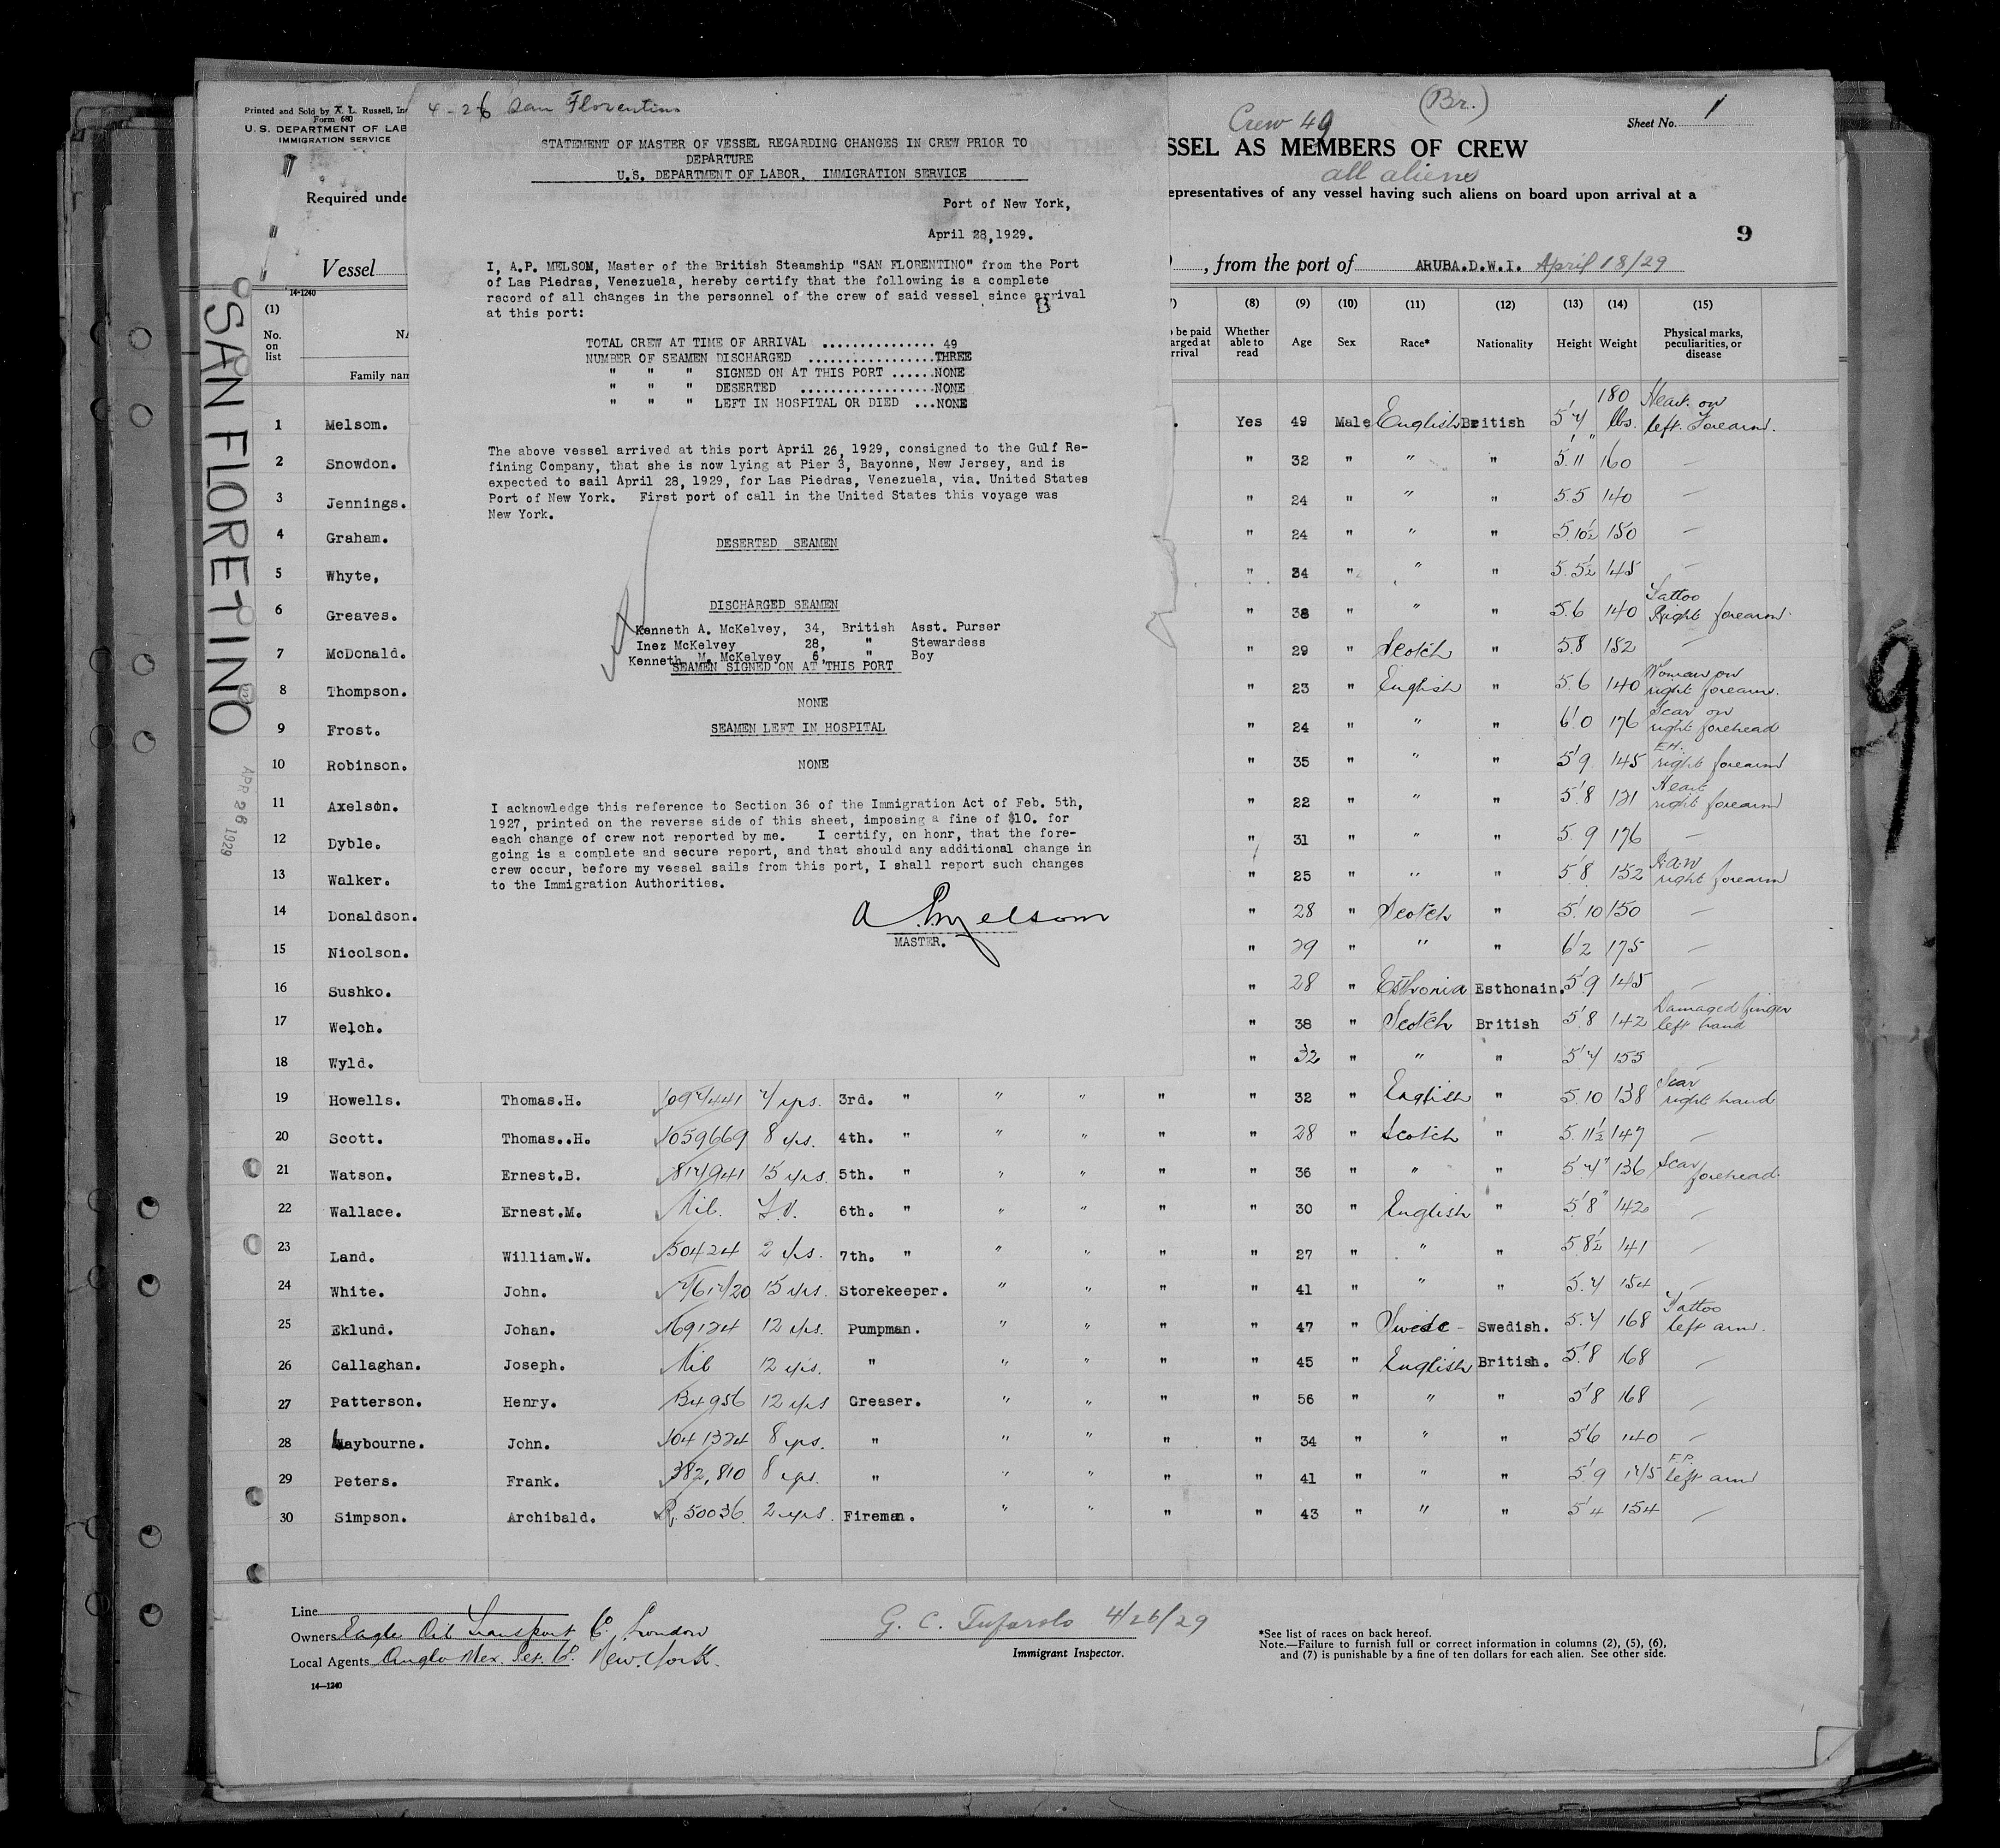 Printed and Sold by A. L. Russell, Inc
Form 680
U.S. DEPARTMENT OF LAB
IMMIGRATION SERVICE
Required unde
Vessel
14-1240
SAN FLORETINO
APR 26 1929
4-26 San Florentino
STATEMENT OF MASTER OF VESSEL REGARDING CHANGES IN CREW PRIOR TO
DEPARTURE
U.S. DEPARTMENT OF LABOR, IMMIGRATION SERVICE
Port of New York,
April 28,1929.
I, A.P. MELSOM, Master of the British Steamship "SAN FLORENTINO" from the Port
of Las Piedras, Venezuela, hereby certify that the following is a complete
record of all changes in the personnel of the crew of said vessel since arrival
at this port:
TOTAL CREW AT TIME OF ARRIVAL ............... 49
NUMBER OF SEAMEN DISCHARGED .................THREE
" " " SIGNED ON AT THIS PORT ......NONE
" " " DESERTED ..................NONE
" " " LEFT IN HOSPITAL OR DIED ...NONE
The above vessel arrived at this port April 26, 1929, consigned to the Gulf Re-
fining Company, that she is now lying at Pier 3, Bayonne, New Jersey, and is
expected to sail April 28, 1929, for Las Piedras, Venezuela, via. United States
Port of New York. First port of call in the United States this voyage was
New York.
DESERTED SEAMEN
DISCHARGED SEAMEN
Kenneth A. McKelvey, 34, British Asst. Purser
Inez McKelvey 28, " Stewardess
Kenneth M. McKelvey 6, " Boy
SEAMEN SIGNED ON AT THIS PORT
NONE
SEAMEN LEFT IN HOSPITAL
NONE
I acknowledge this reference to Section 36 of the Immigration Act of Feb. 5th,
1927, printed on the reverse side of this sheet, imposing a fine of $10. for
each change of crew not reported by me. I certify, on honr, that the fore-
going is a complete and secure report, and that should any additional change in
crew occur, before my vessel sails from this port, I shall report such changes
to the Immigration Authorities.
A P Melsom
MASTER.
Crew 49 (Br.) Sheet No. 1
SSEL AS MEMBERS OF CREW
all aliens
epresentatives of any vessel having such aliens on board upon arrival at a
9
, from the port of ARUBA.D.W.I. April 18/29
(1) (8) (9) (10) (11) (12) (13) (14) (15)
No. on list NA be paid arged at rrival Whether able to read Age Sex Race* Nationality Height Weight Physical marks, peculiarities, or disease
Family nam
1 Melsom. Yes 49 Male English British 5'7 180 lbs. Heart on left Forearm.
2 Snowdon. " 32 " " " 5.11 160 —
3 Jennings. " 24 " " " 5.5 140 —
4 Graham. " 24 " " " 5.10½ 150 —
5 Whyte, " 34 " " " 5.5½ 145 —
6 Greaves. " 38 " " " 5.6 140 Tattoo Right forearm.
7 McDonald. " 29 " Scotch " 5.8 182 —
8 Thompson. " 23 " English " 5.6 140 Woman on right forearm.
9 Frost. " 24 " " " 6'0 176 Scar on right forehead
10 Robinson. " 35 " " " 5'9 145 E.H. right forearm
11 Axelson. " 22 " " " 5'8 121 Heart right forearm
12 Dyble. " 31 " " " 5.9 176 —
13 Walker. " 25 " " " 5'8 152 right forearm
14 Donaldson. " 28 " Scotch " 5'.10 150 —
15 Nicolson. " 29 " " " 6'2 175 —
16 Sushko. " 28 " Esthonia Esthonain. 5'9 145 —
17 Welch. " 38 " Scotch British 5'8 142 Damaged finger left hand
18 Wyld. " 32 " " " 5'7 155 —
19 Howells. Thomas.H. 1097441 7 yrs. 3rd. " " " " " 32 " English " 5.10 138 Scar right hand
20 Scott. Thomas..H. 1059669 8 yrs. 4th. " " " " " 28 " Scotch " 5.11½ 147 —
21 Watson. Ernest.B. 817941 15 yrs. 5th. " " " " " 36 " " " 5'7" 136 Scar forehead.
22 Wallace. Ernest.M. Nil. 6th. " " " " " 30 " English " 5'8" 142 —
23 Land. William.W. 50424 2 yrs. 7th. " " " " " 27 " " " 5.8½ 141 —
24 White. John. 761720 15 yrs. Storekeeper. " " " " 41 " " " 5.7 154 —
25 Eklund. Johan. 169124 12 yrs. Pumpman. " " " " 47 " Swede - Swedish. 5.7 168 Tattoo left arm.
26 Callaghan. Joseph. Nil 12 yrs. " " " " " 45 " English British. 5'8 168 —
27 Patterson. Henry. B4956 12 yrs Greaser. " " " " 56 " " " 5'8 168 —
28 Laybourne. John. 1041324 8 yrs. " " " " " 34 " " " 5'6 140 —
29 Peters. Frank. 382,810 8 yrs. " " " " " 41 " " " 5'9 175 F.P. Left arm
30 Simpson. Archibald. R. 50036. 2 yrs. Fireman. " " " " 43 " " " 5'4 154 —
Line
Owners Eagle Oil Transport Co. London
Local Agents Anglo Mex. Pet. Co. New York.
14—1240
G. C. Tufarolo 4/26/29
Immigrant Inspector.
*See list of races on back hereof.
Note.—Failure to furnish full or correct information in columns (2), (5), (6),
and (7) is punishable by a fine of ten dollars for each alien. See other side.
9